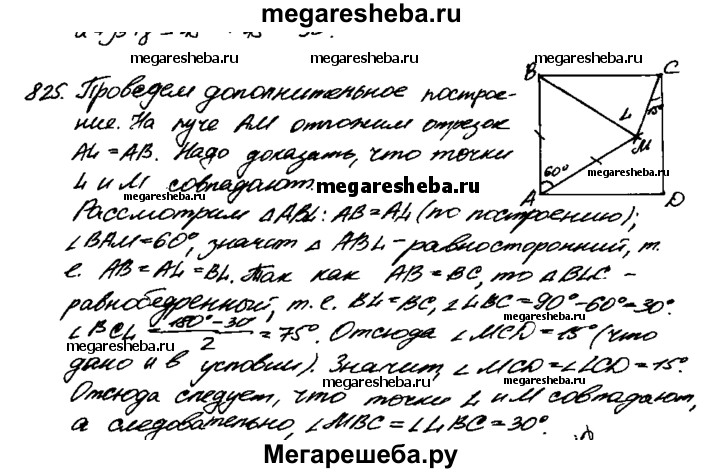 megaresheba.ru
megaresheba.ru megaresheba.ru
825. Проведем дополнительное построе-
ние. На луче AM отложим отрезок
AL=AB. Надо доказать, что точки
L и M совпадают.
megaresheba.ru
Рассмотрим △ABL: AB=AL (по построению);
∠BAM=60°, значит △ ABL - равносторонний, т.
е. AB=AL=BL. Так как AB=BC, то △BLC -
megaresheba.ru megaresheba.ru
равнобедренный, т.е. BL=BC, ∠LBC=90°-60°=30°.
∠BCL = (180°-30°)/2 = 75°. Отсюда ∠MCD=15° (что
megaresheba.ru megaresheba.ru
дано и в условии). Значит, ∠MCD=∠LCD=15°.
megaresheba.ru megaresheba.ru
Отсюда следует, что точки L и M совпадают,
а следовательно, ∠MBC=∠LBC=30°.
B C
L 15°
M
60°
A D
Мегарешеба.ру